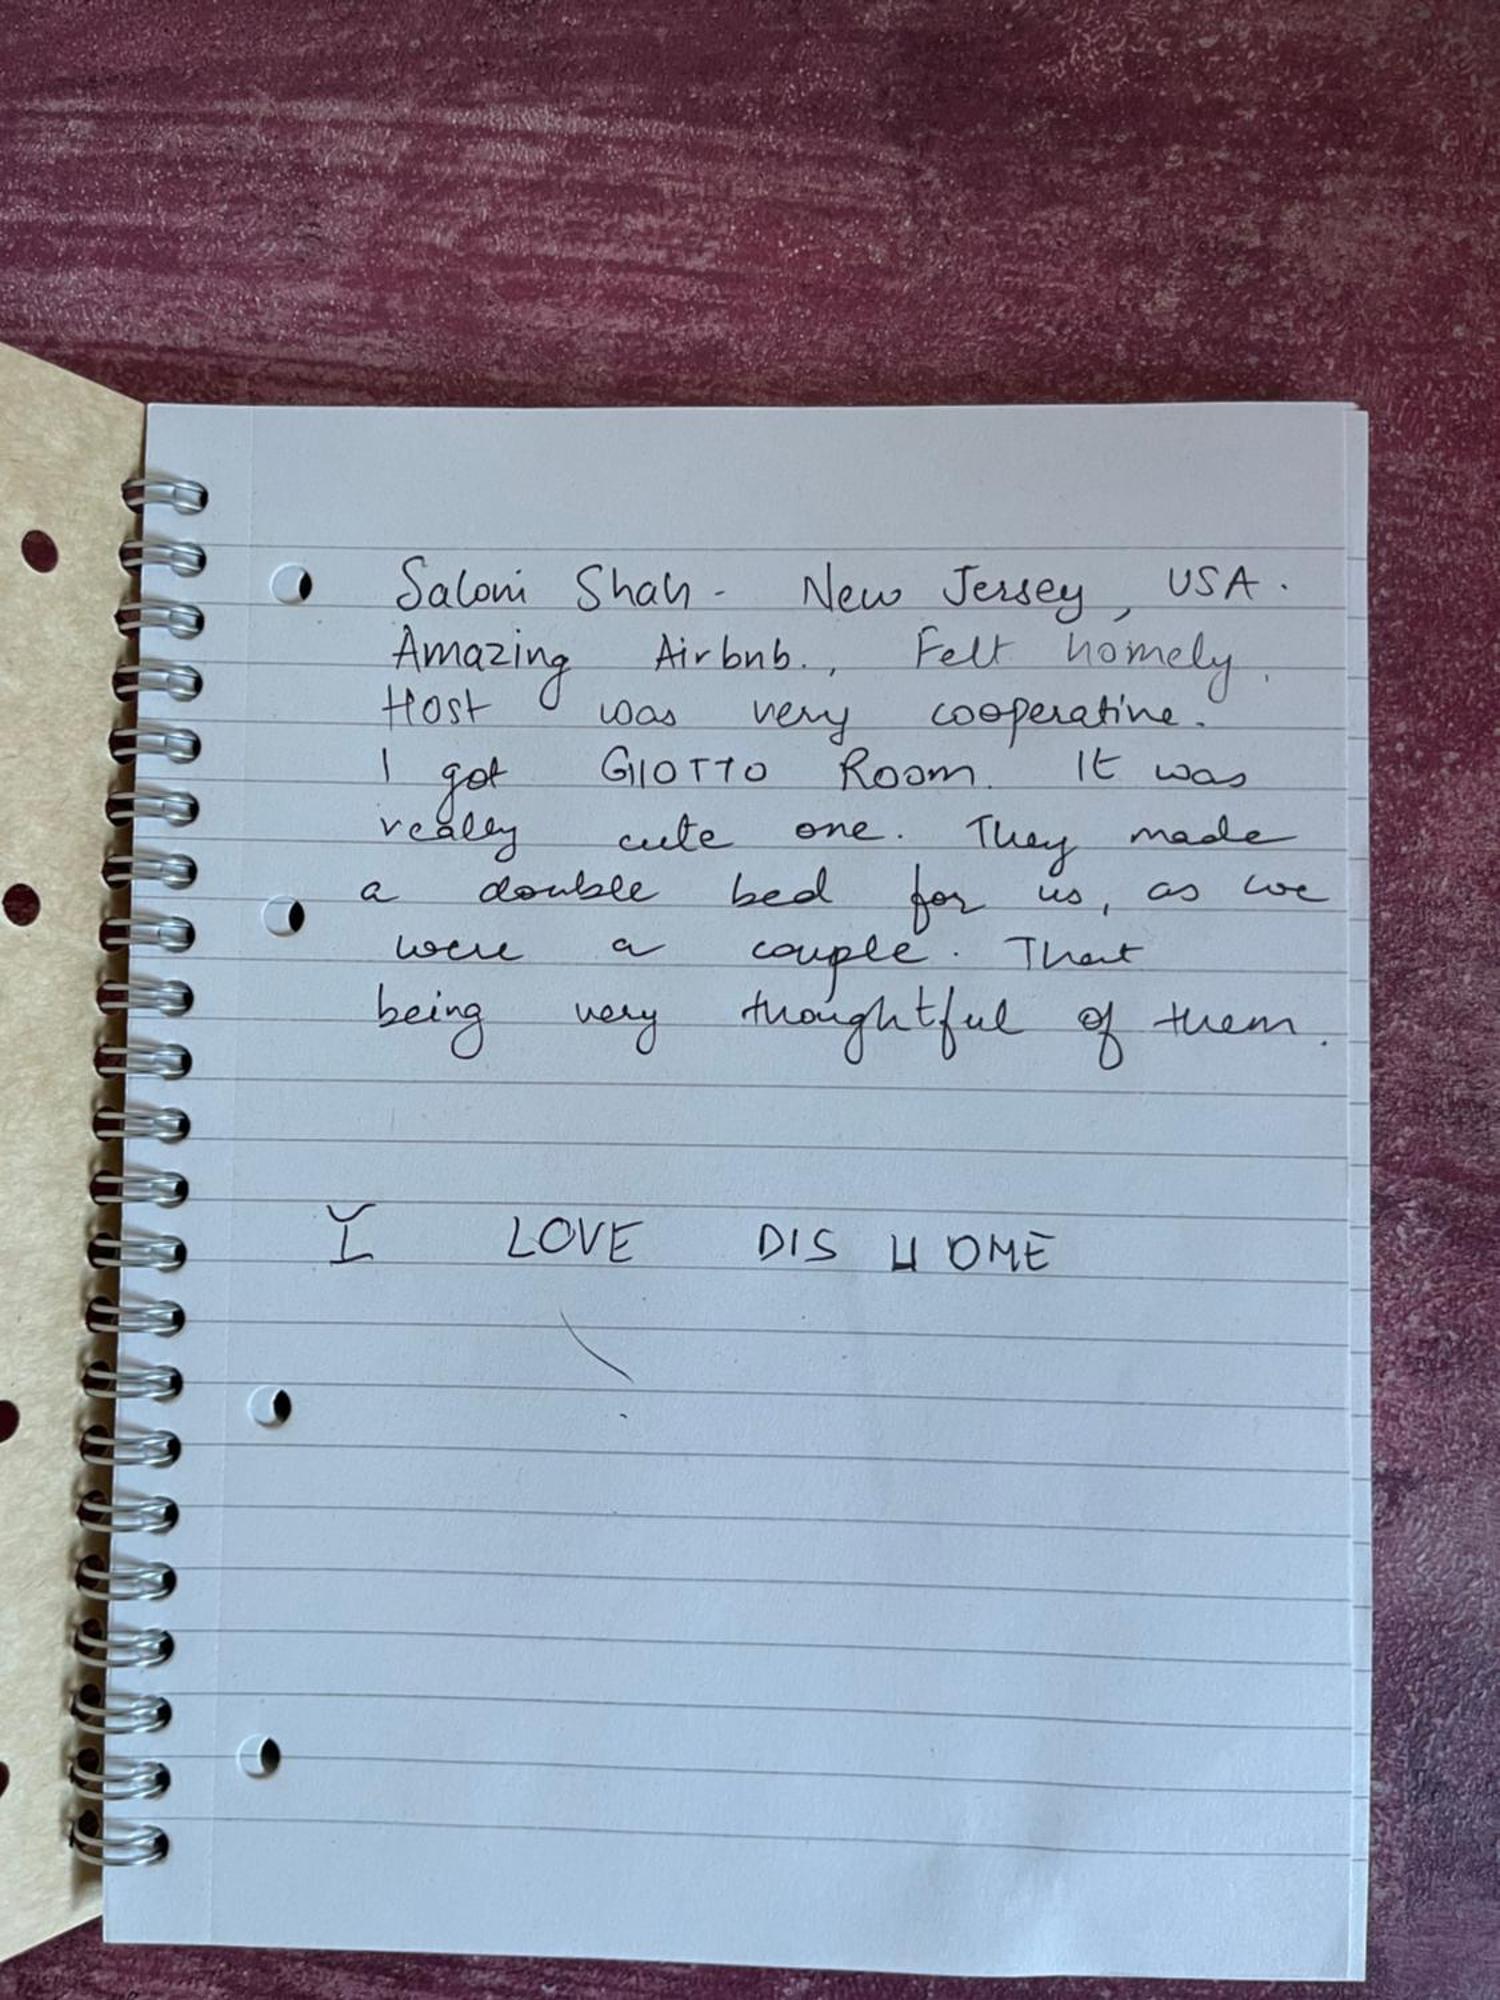 Saloni Shah - New Jersey, USA.
Amazing Airbnb., Felt homely.
Host was very cooperative.
I got GIOTTO Room. It was
really cute one. They made
a double bed for us, as we
were a couple. That
being very thoughtful of them.
I LOVE DIS HOME